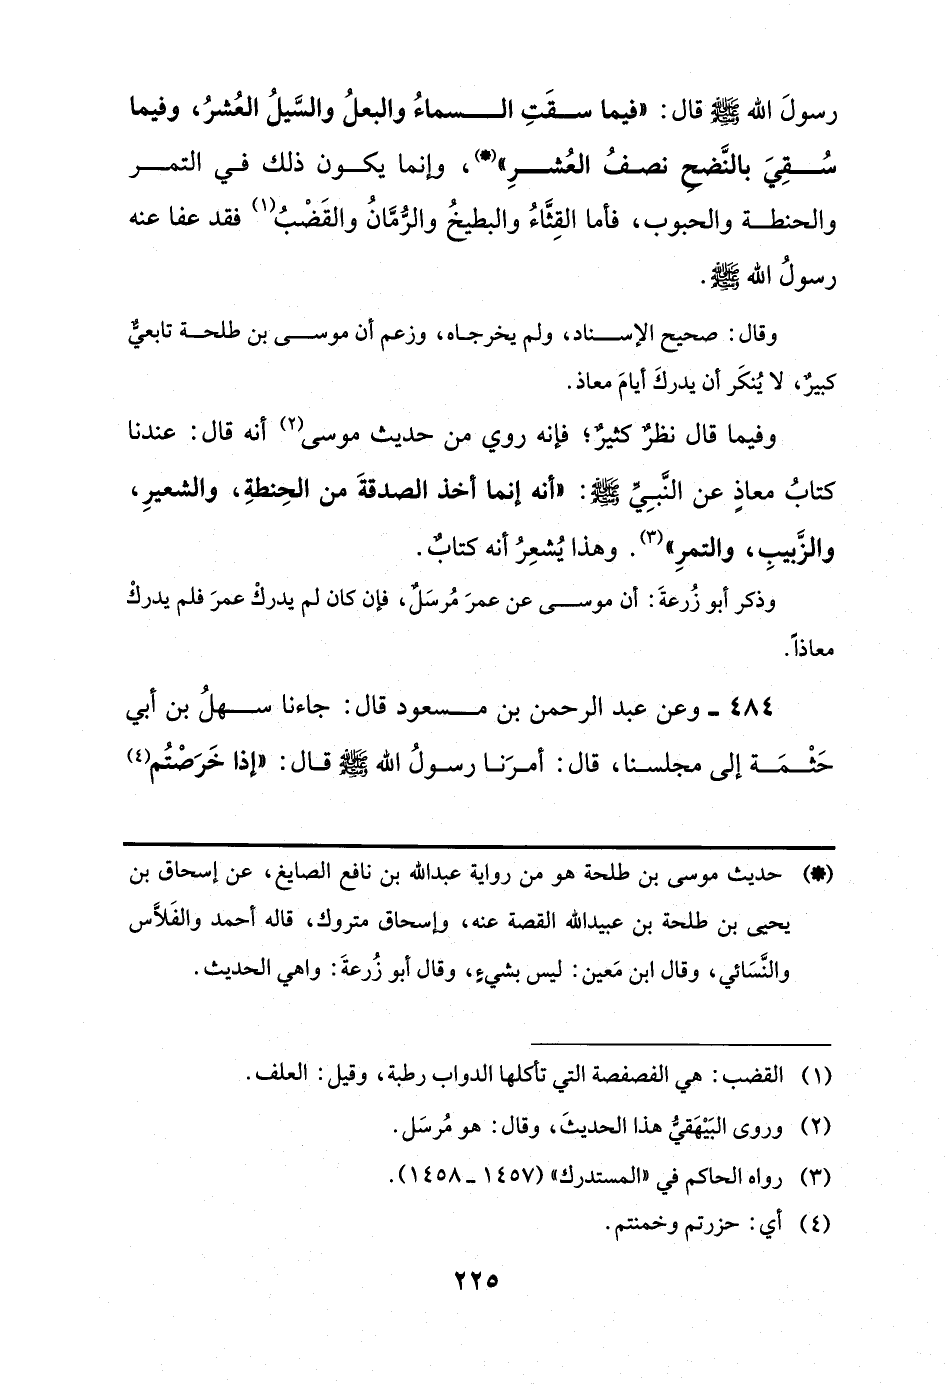 رسولَ الله ﷺ قال: «فيما سـقَتِ السـماءُ والبعلُ والسَّيلُ العُشرُ، وفيما
سُـقِيَ بالنَّضحِ نصفُ العُشـرِ»(*)، وإنما يكـون ذلك فـي التمـر
والحنطـة والحبوب، فأما القِثَّاءُ والبطيخُ والرُّمَّانُ والقَضْبُ(١) فقد عفا عنه
رسولُ الله ﷺ.
وقال: صحيح الإسـناد، ولم يخرجـاه، وزعم أن موسـى بن طلحـة تابعيٌّ
كبيرٌ، لا يُنكَر أن يدركَ أيامَ معاذ.
وفيما قال نظرٌ كثيرٌ؛ فإنه روي من حديث موسى(٢) أنه قال: عندنا
كتابُ معاذٍ عن النَّبيِّ ﷺ: «أنه إنما أخذ الصدقةَ من الحِنطةِ، والشعيرِ،
والزَّبيبِ، والتمرِ»(٣). وهذا يُشعِرُ أنه كتابٌ.
وذكر أبو زُرعةَ: أن موسـى عن عمرَ مُرسَلٌ، فإن كان لم يدركْ عمرَ فلم يدركْ
معاذاً.
٤٨٤ ـ وعن عبد الرحمن بن مـسعود قال: جاءنا سـهلُ بن أبي
حَثْـمَـة إلى مجلسـنا، قال: أمـرَنـا رسولُ الله ﷺ قـال: «إذا خَرَصْتُم(٤)
(*) حديث موسى بن طلحة هو من رواية عبدالله بن نافع الصايغ، عن إسحاق بن
يحيى بن طلحة بن عبيدالله القصة عنه، وإسحاق متروك، قاله أحمد والفَلاَّس
والنَّسَائي، وقال ابن مَعين: ليس بشيءٍ، وقال أبو زُرعةَ: واهي الحديث.
(١) القضب: هي الفصفصة التي تأكلها الدواب رطبة، وقيل: العلف.
(٢) وروى البَيْهَقيُّ هذا الحديثَ، وقال: هو مُرسَل.
(٣) رواه الحاكم في «المستدرك» (١٤٥٧ ـ ١٤٥٨).
(٤) أي: حزرتم وخمنتم.
٢٢٥